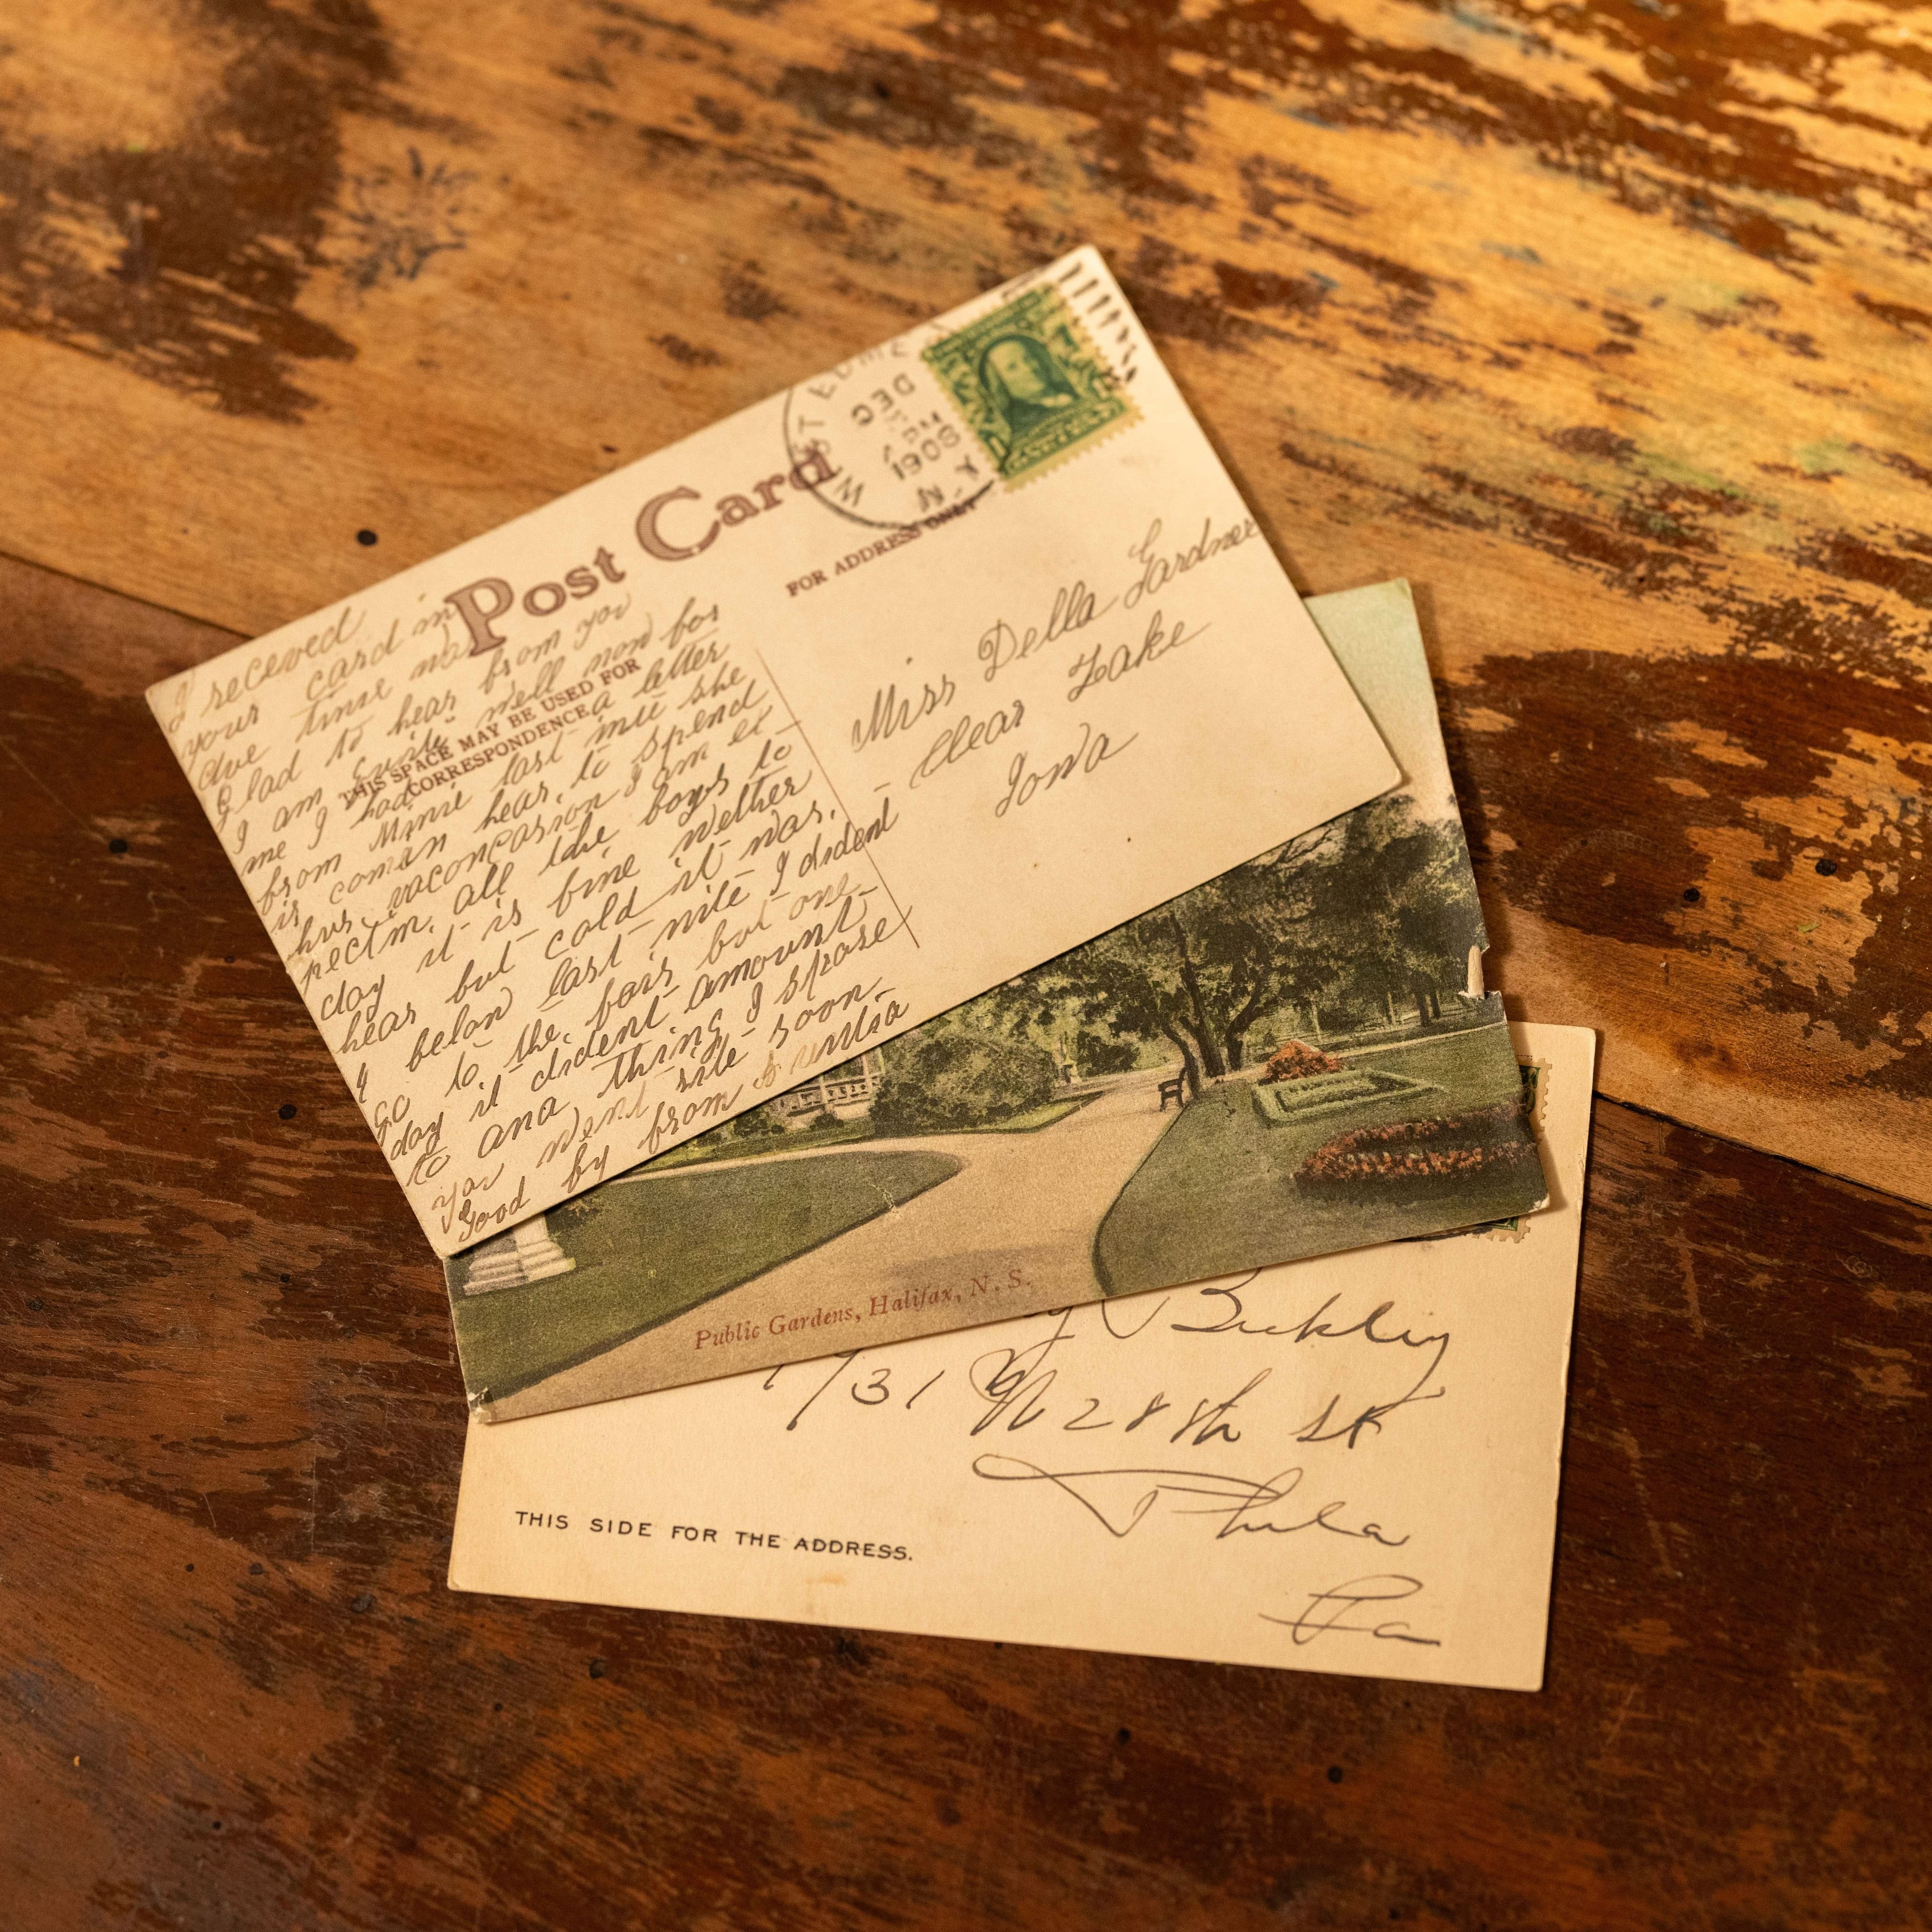 Post Card
THIS SPACE MAY BE USED FOR
CORRESPONDENCE
FOR ADDRESS ONLY
WEST EDME
DEC
PM
1908
N.Y.
Miss Della Gardner
Clear Lake
Iowa
I receved
your card in
due time was
glad to hear from you
I am quite well now for
me I had a letter
from Minie last nite she
is coman hear to spend
hur vaconcasion I am ex
pectin all the boys to
day it is fine wether
hear but cold it was
4 belon last nite I dident
go to the fair but one
day it dident amount
to ana thing I spose
you went rite soon
Good by from
Public Gardens, Halifax, N. S.
1731 N 28th St
Phila
Pa
THIS SIDE FOR THE ADDRESS.